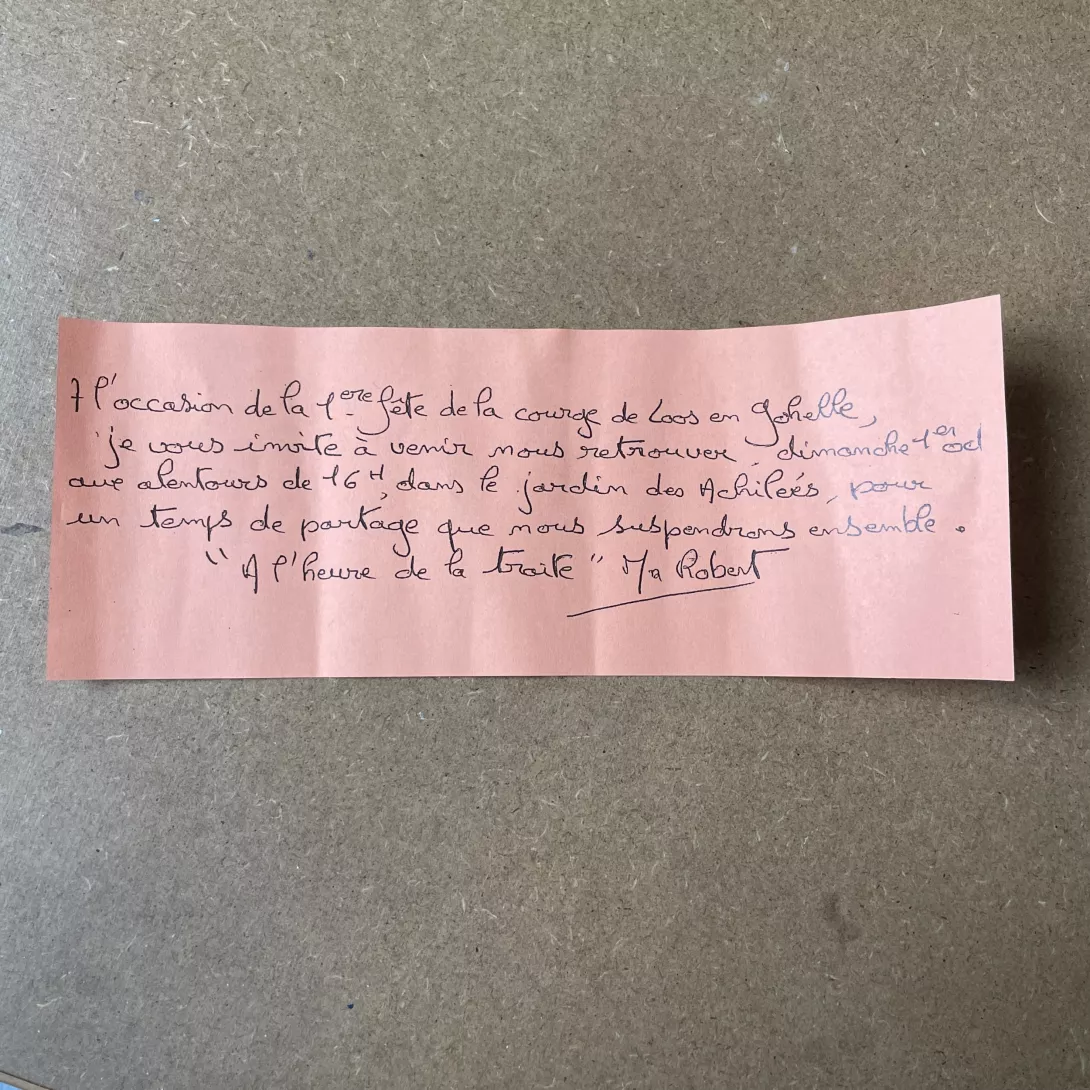 A l'occasion de la 1ere fête de la courge de Loos en Gohelle,
je vous invite à venir nous retrouver, dimanche 1er oct
aux alentours de 16H, dans le jardin des Achilées, pour
un temps de partage que nous suspendrons ensemble.
"A l'heure de la traite" Mr Robert